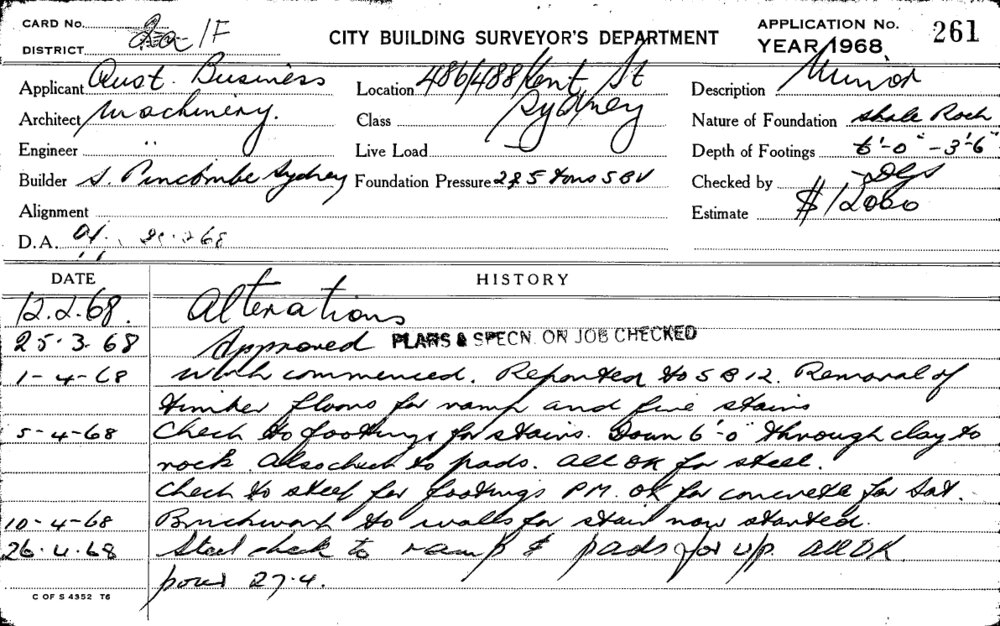 CARD No.
DISTRICT 2a/F
CITY BUILDING SURVEYOR'S DEPARTMENT
APPLICATION No. 261
YEAR 1968
Applicant Aust. Business
Location 486/488 Kent St
Description Minor
Architect Machinery.
Class Sydney
Nature of Foundation Shale Rock
Engineer "
Live Load
Depth of Footings 6'-0" - 3'-6"
Builder S. Pincombe Sydney
Foundation Pressure tons
Checked by
Alignment
Estimate $12000
D.A. 68
DATE HISTORY
12.2.68. Alterations
25.3.68 Approved PLANS & SPECN. ON JOB CHECKED
1-4-68 Work commenced. Reported to S B 12. Removal of
timber floors for ramp and fire stairs
5-4-68 Check to footings for stairs. Down 6'-0" through clay to
rock. Also check to pads. All OK for steel.
Check to steel for footings P.M. OK for concrete for Sat.
10-4-68 Brickwork to walls for stair now started.
26.4.68 Steel check to ramp & pads for u/p. All OK
pour 27.4.
C OF S 4352 T6